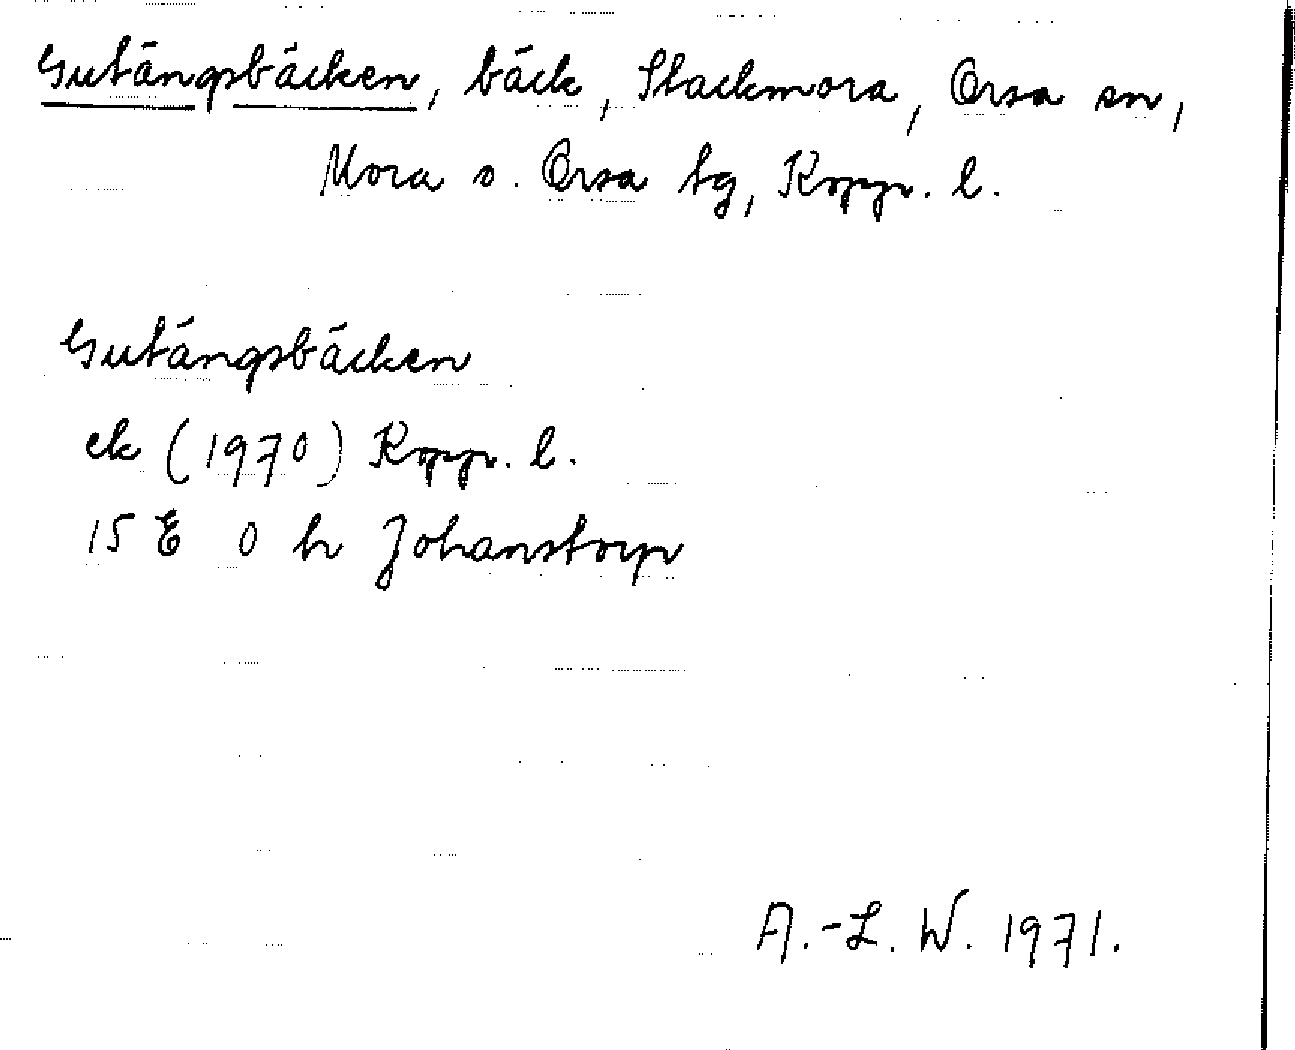 Gutängsbäcken, bäck, Stackmora, Orsa sn,
Mora o. Orsa tg, Kopp. l.
Gutängsbäcken
ek (1970) Kopp. l.
15 E 0 h Johanstorp
A.-L. W. 1971.